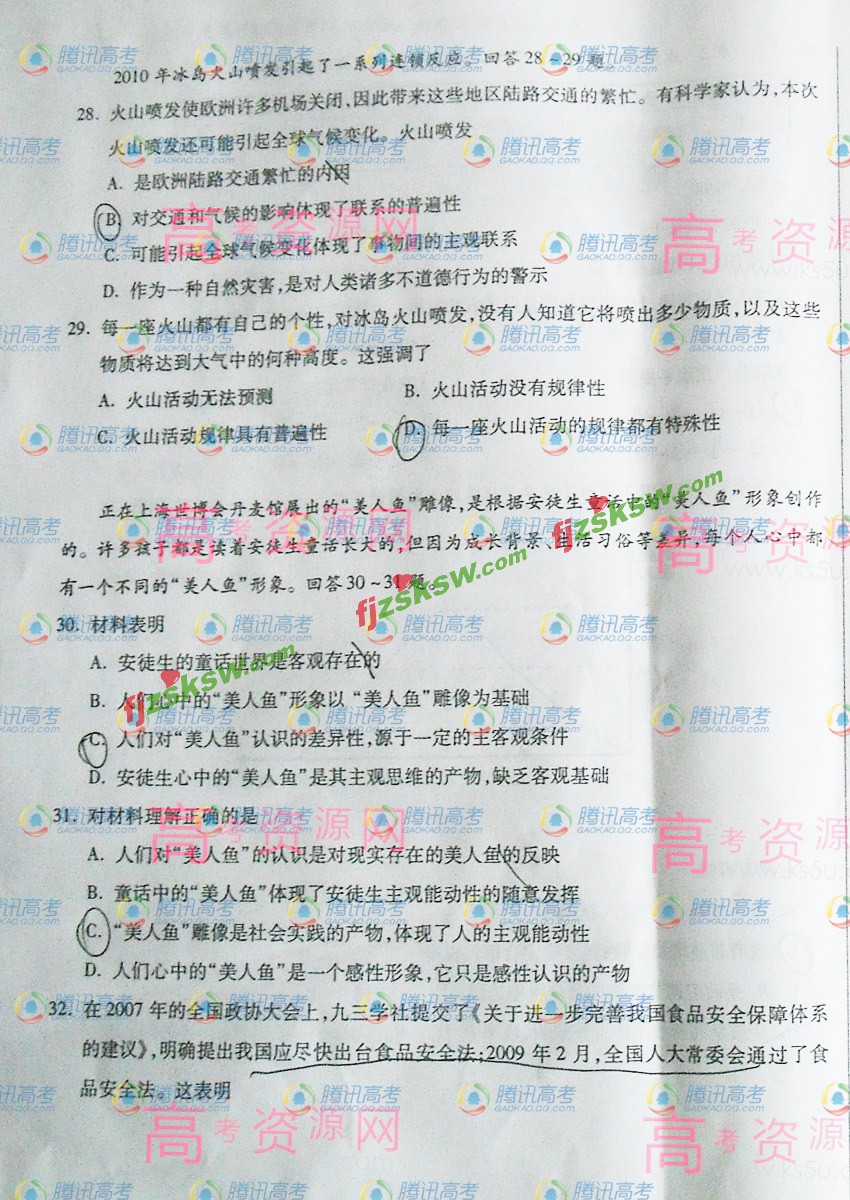 2010年冰岛火山喷发引起了一系列连锁反应。回答28~29题
28. 火山喷发使欧洲许多机场关闭,因此带来这些地区陆路交通的繁忙。有科学家认为,本次
火山喷发还可能引起全球气候变化。火山喷发
A. 是欧洲陆路交通繁忙的内因
B. 对交通和气候的影响体现了联系的普遍性
C. 可能引起全球气候变化体现了事物间的主观联系
D. 作为一种自然灾害,是对人类诸多不道德行为的警示
29. 每一座火山都有自己的个性,对冰岛火山喷发,没有人知道它将喷出多少物质,以及这些
物质将达到大气中的何种高度。这强调了
A. 火山活动无法预测 B. 火山活动没有规律性
C. 火山活动规律具有普遍性 D. 每一座火山活动的规律都有特殊性
正在上海世博会丹麦馆展出的“美人鱼”雕像,是根据安徒生童话中的“美人鱼”形象创作
的。许多孩子都是读着安徒生童话长大的,但因为成长背景、生活习俗等差异,每个人心中都
有一个不同的“美人鱼”形象。回答30~31题。
30. 材料表明
A. 安徒生的童话世界是客观存在的
B. 人们心中的“美人鱼”形象以“美人鱼”雕像为基础
C. 人们对“美人鱼”认识的差异性,源于一定的主客观条件
D. 安徒生心中的“美人鱼”是其主观思维的产物,缺乏客观基础
31. 对材料理解正确的是
A. 人们对“美人鱼”的认识是对现实存在的美人鱼的反映
B. 童话中的“美人鱼”体现了安徒生主观能动性的随意发挥
C. “美人鱼”雕像是社会实践的产物,体现了人的主观能动性
D. 人们心中的“美人鱼”是一个感性形象,它只是感性认识的产物
32. 在2007年的全国政协大会上,九三学社提交了《关于进一步完善我国食品安全保障体系
的建议》,明确提出我国应尽快出台食品安全法;2009年2月,全国人大常委会通过了食
品安全法。这表明